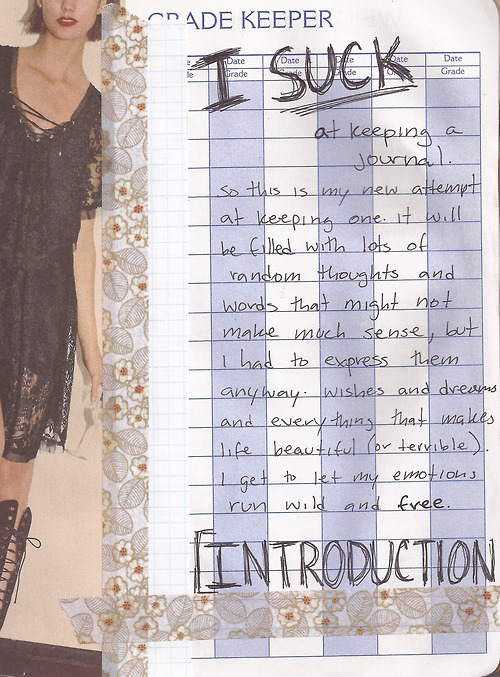 GRADE KEEPER
Date Date Date Date Date
Grade Grade
I SUCK
at keeping a
journal.
so this is my new attempt
at keeping one. it will
be filled with lots of
random thoughts and
words that might not
make much sense, but
I had to express them
anyway. wishes and dreams
and everything that makes
life beautiful (or terrible).
I get to let my emotions
run wild and free.
[INTRODUCTION